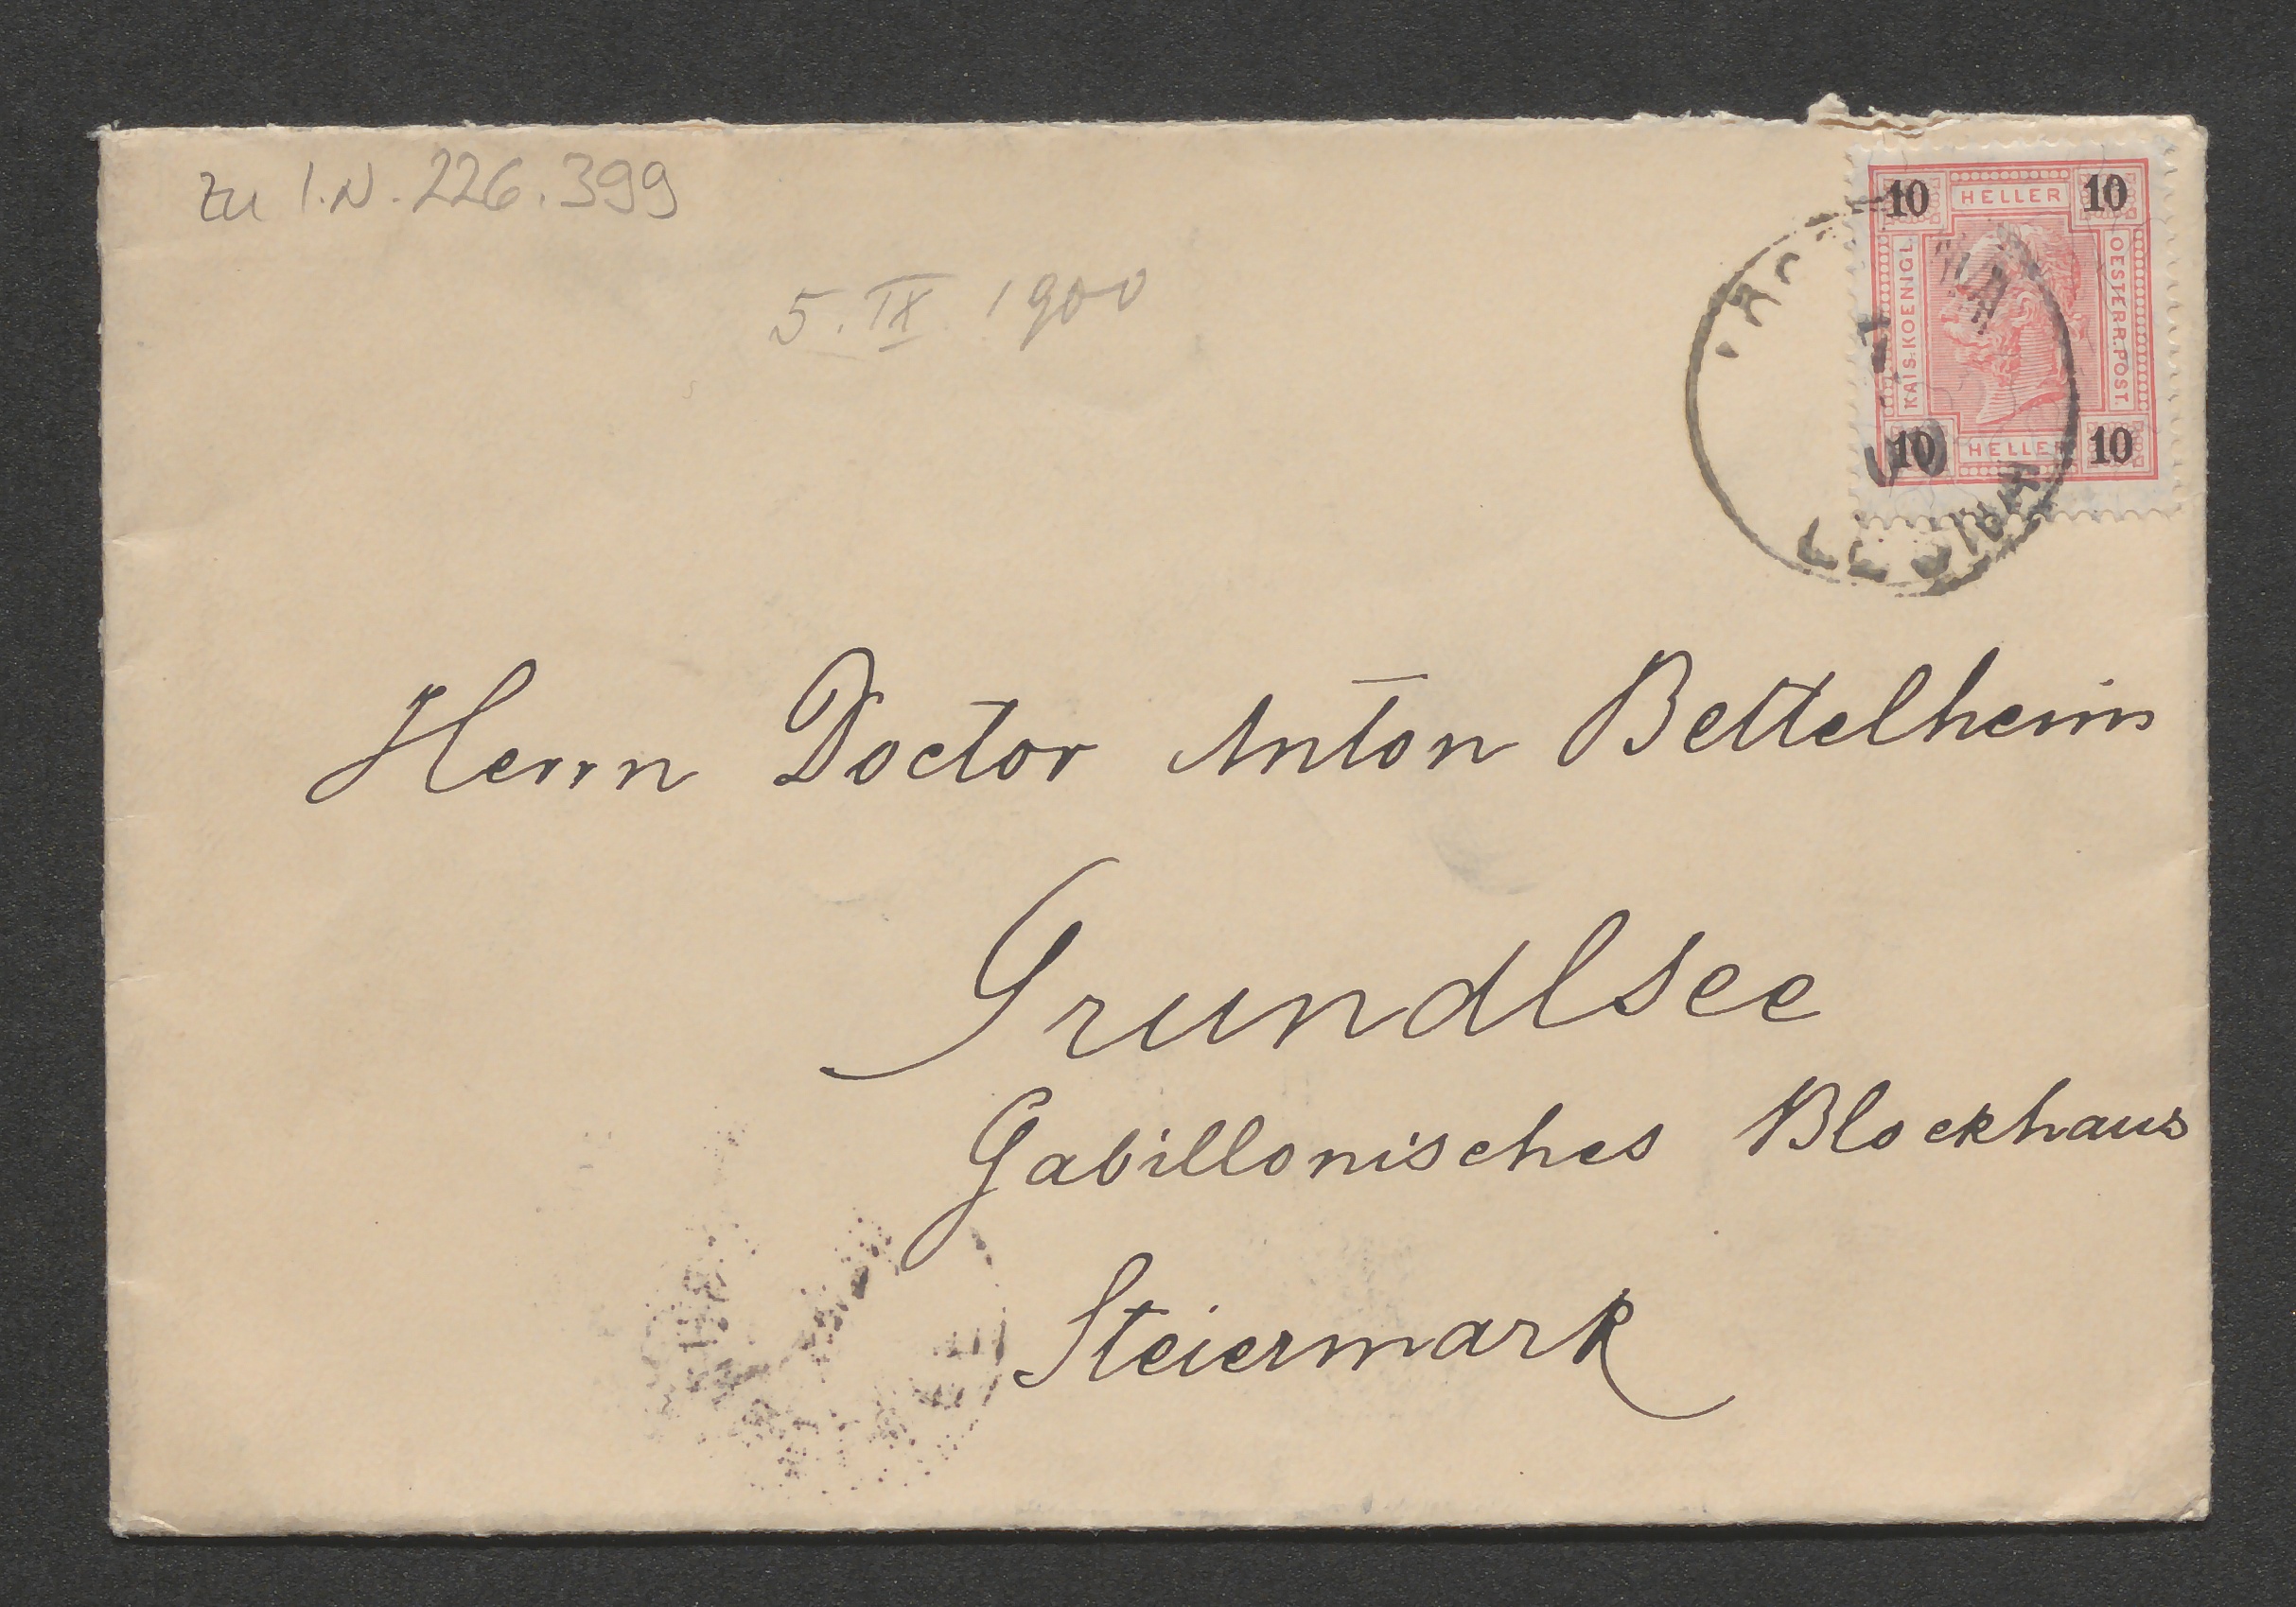 zu I.N. 226.399
5. IX. 1900
10 HELLER 10
KAIS. KOENIGL.
OESTERR. POST.
10 HELLER 10
Herrn Doctor Anton Bettelheim
Grundlsee
Gabillonisches Blockhaus
Steiermark